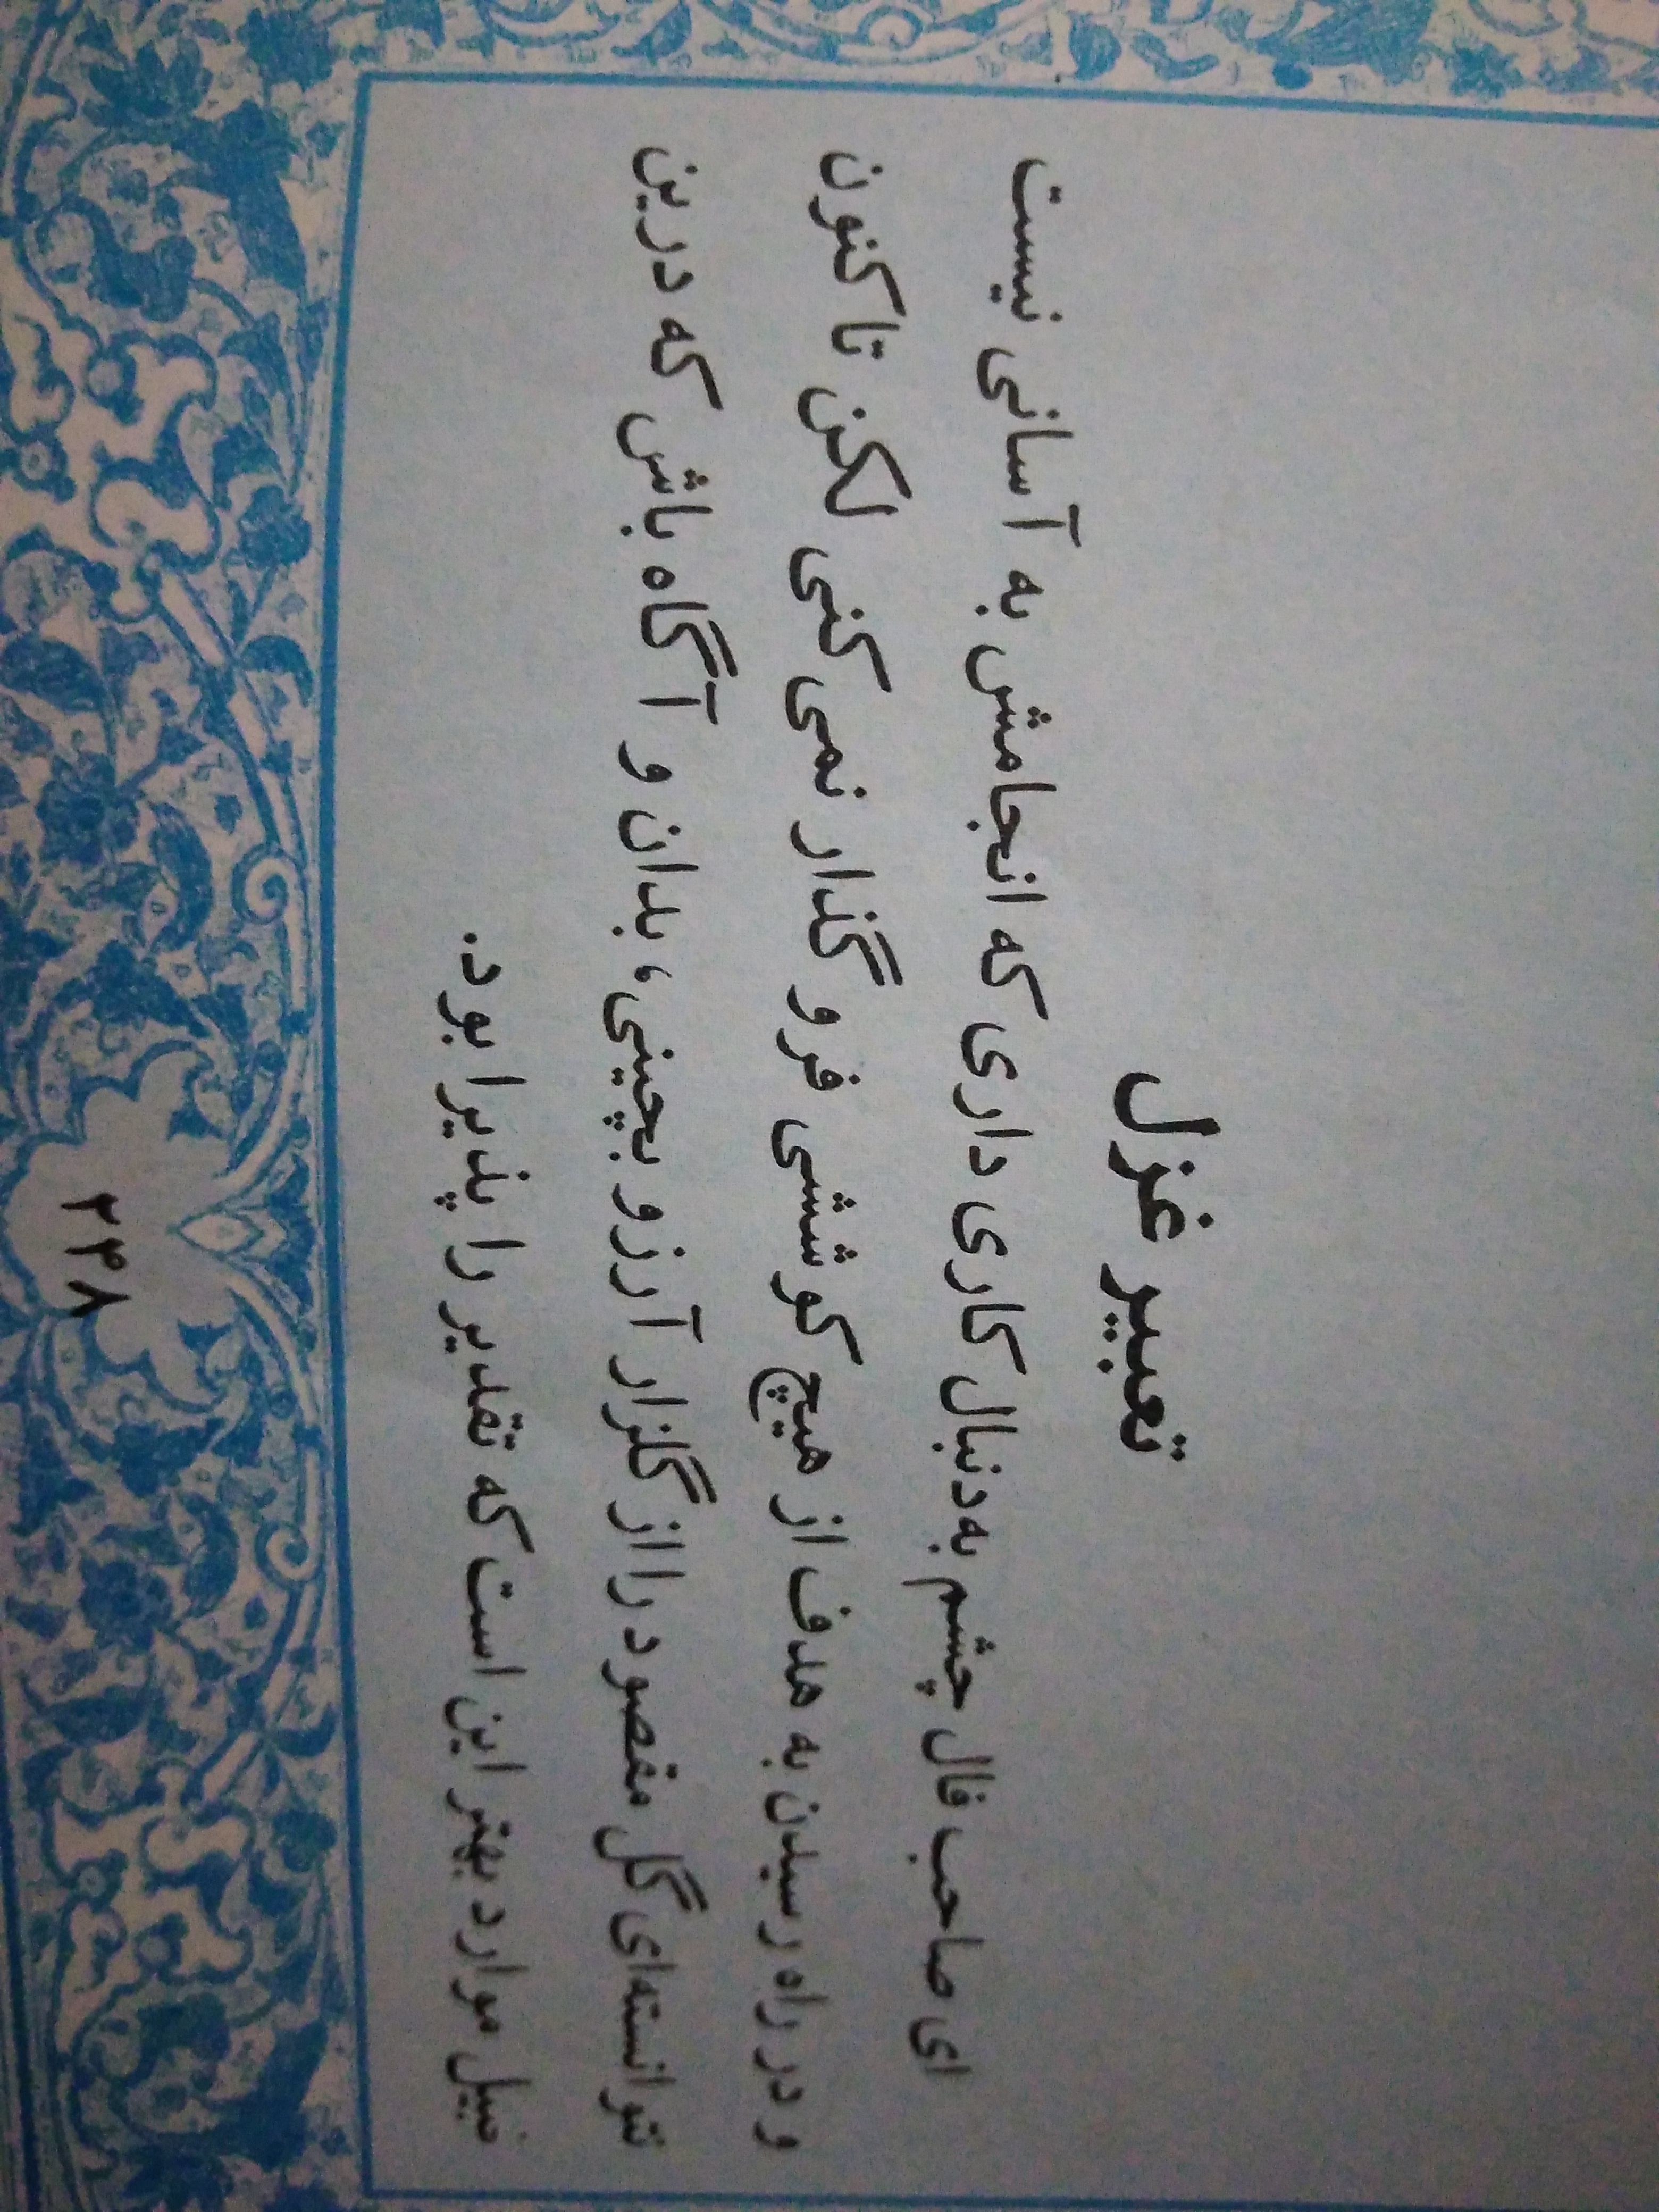 تعبیر غزل
ای صاحب فال چشم به دنبال کاری داری که انجامش به آسانی نیست
و در راه رسیدن به هدف از هیچ کوششی فرو گذار نمی کنی لکن تاکنون
نتوانسته‌ای گل مقصود را از گلزار آرزو بچینی، بدان و آگاه باش که درین
قبیل موارد بهتر این است که تقدیر را پذیرا بود.
۲۳۸